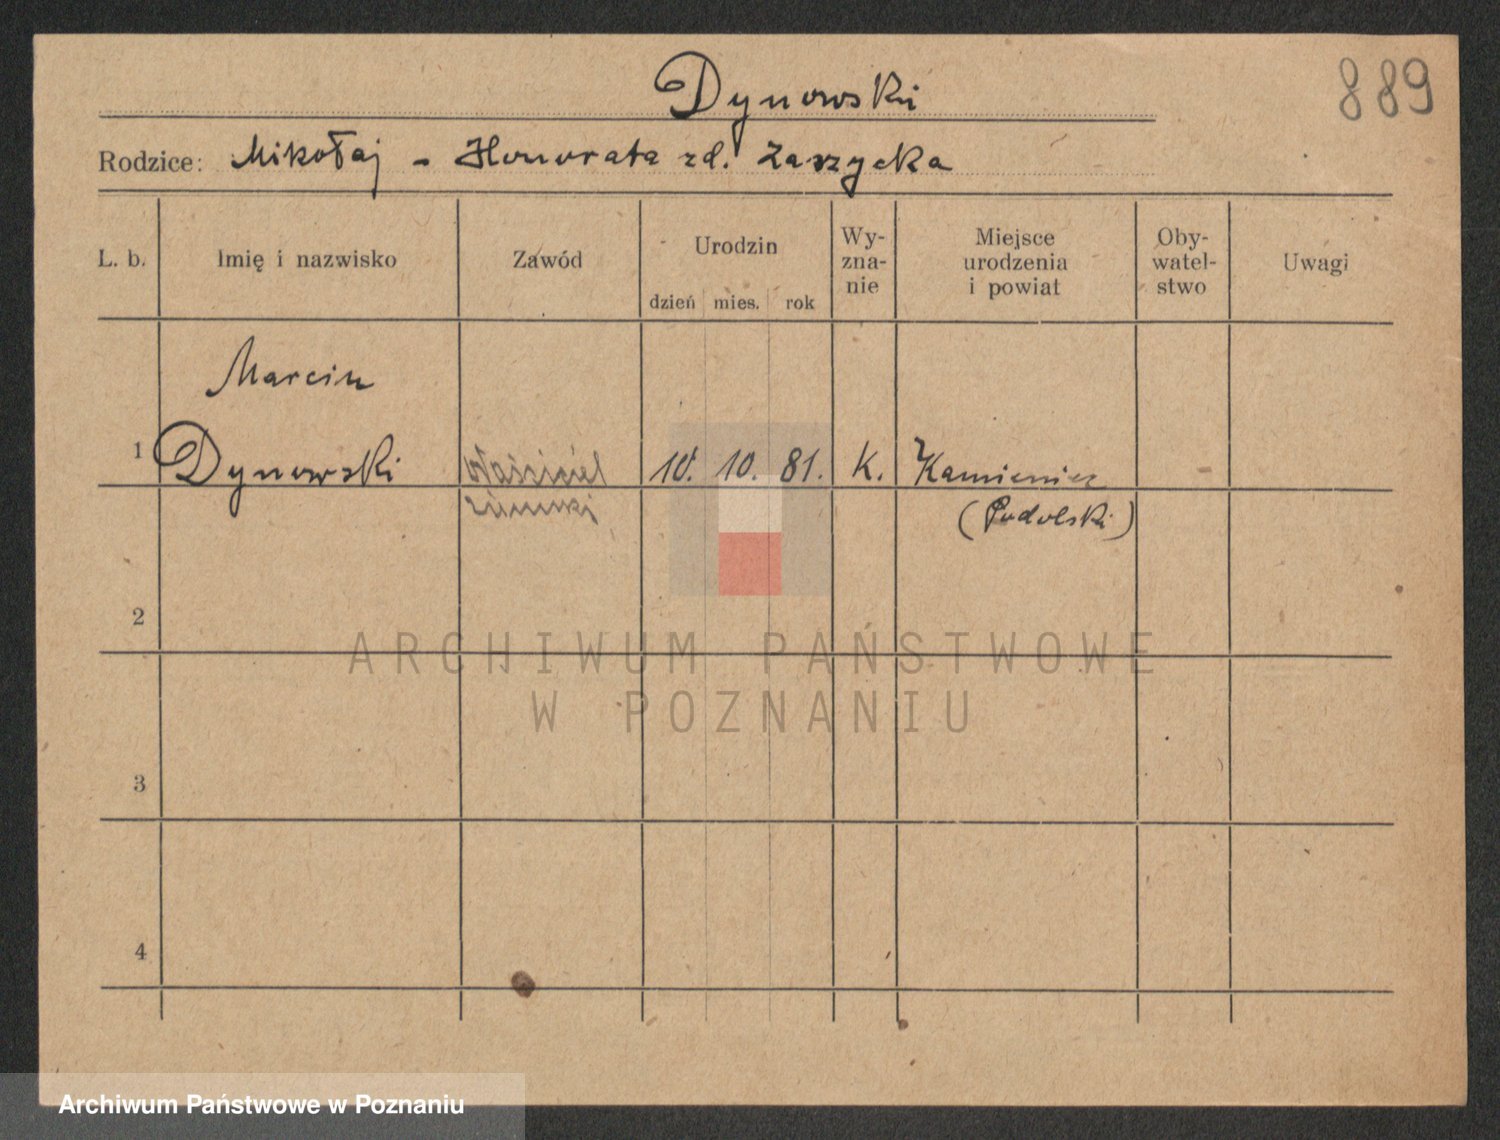 889
Dynowski
Rodzice: Mikołaj - Honorata zd. Zaszycka
L. b. Imię i nazwisko Zawód Urodzin dzień mies. rok Wy-zna-nie Miejsce urodzenia i powiat Oby-watel-stwo Uwagi
Marcin
1 Dynowski właściciel 10. 10. 81. K. Kamieniec
ziemski (Podolski)
2
3
4
ARCHIWUM PAŃSTWOWE
W POZNANIU
Archiwum Państwowe w Poznaniu